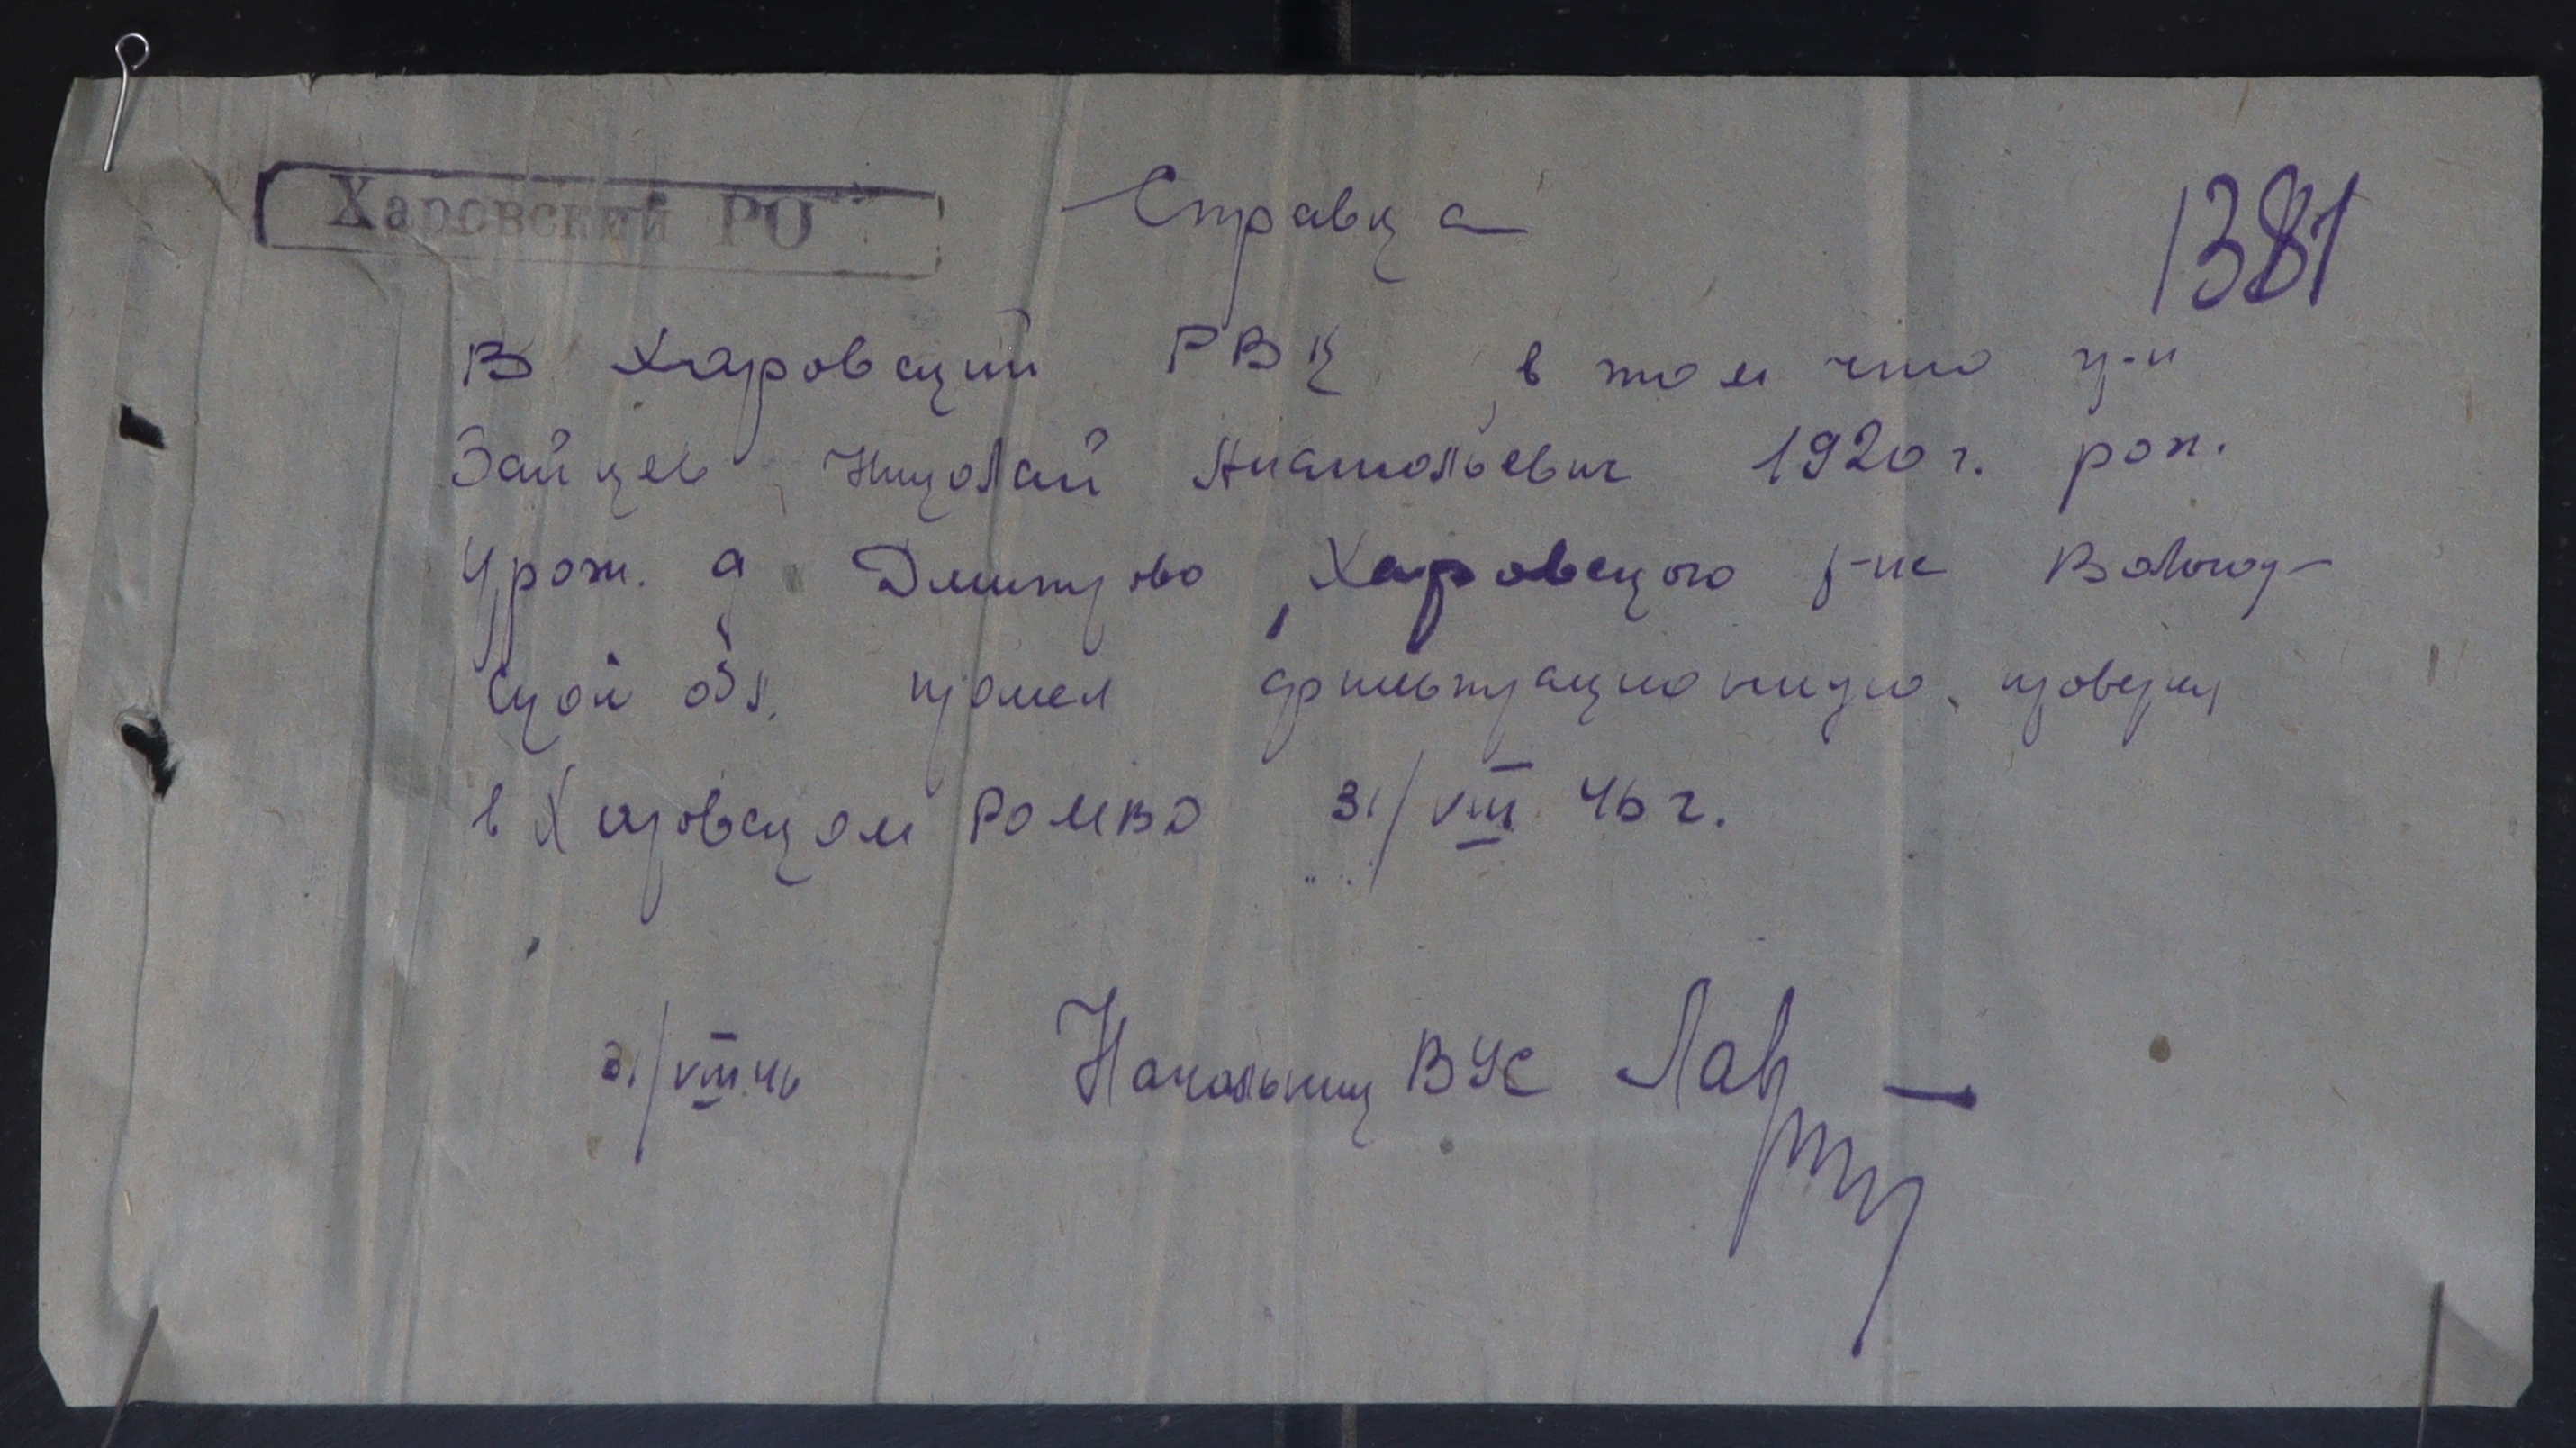 Харовский РО
Справка
1381
В Харовский РВК, в том что г-н
Зайцев Николай Анатольевич 1920 г. рож.
Урож. д Дмитрово Харовского р-на Вологод-
ской обл. прошел фильтрационную проверку
в Харовском РОМВД 31/VIII 46 г.
31/VIII 46 Начальник ВУС